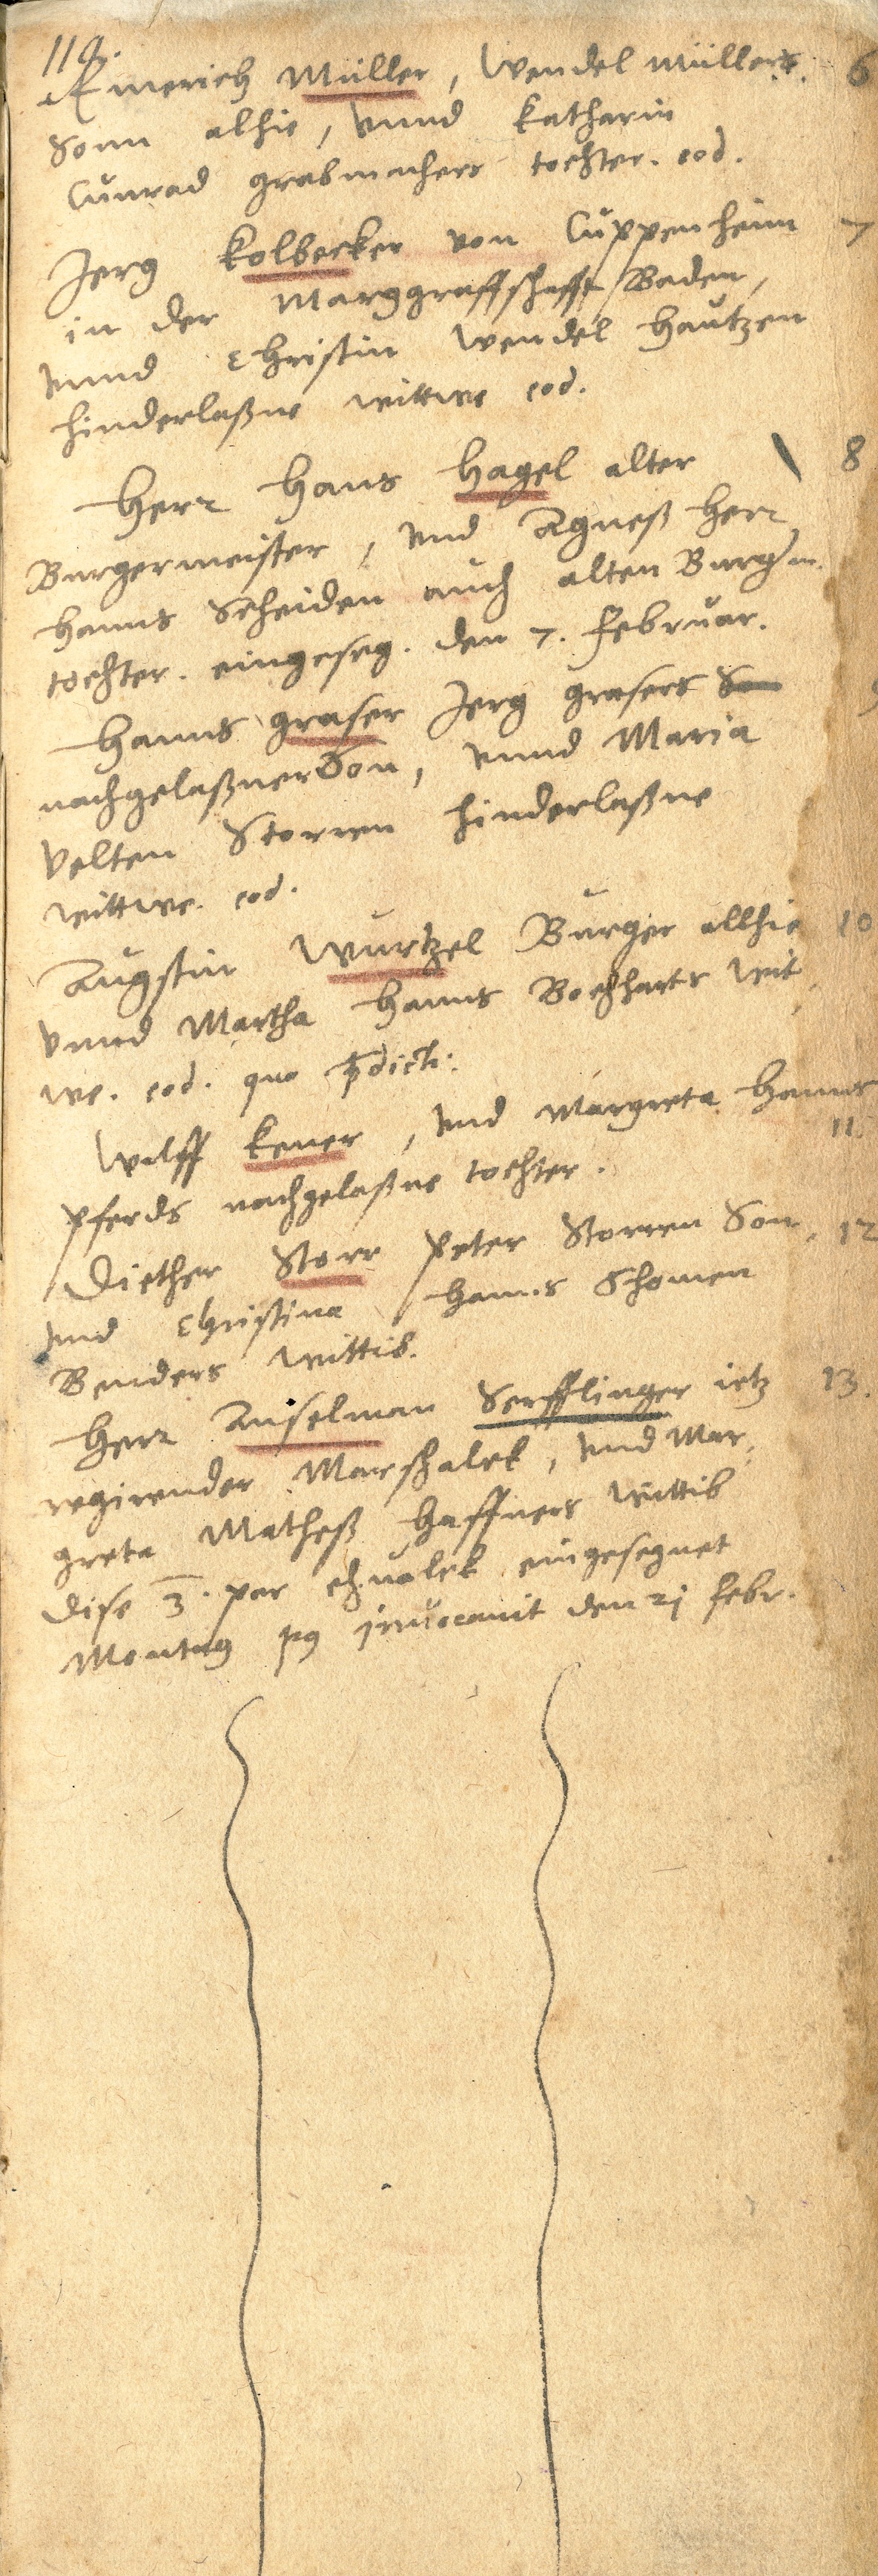 118.
Emerich Müller, Wendel Müllers. 6
Sonn alhie, vnnd Katharin
Cunrad grabmachers tochter. eod.
Jerg Kolbecker von Cuppenheim 7
in der Marggraffschafft Baden,
vnnd Christin Wendel Hautzen
hinderlaßne wittwe eod.
Herr Hans Hagel alter 8
Burgermeister, vnd Agneß Herr
Hanns Scheiden auch alten Burgerm.
tochter. eingeseg. den 7. Februar.
Hanns graser Jerg grasers 9
nachgelaßner Son, vnnd Maria
Velten Storren hinderlaßne
wittwe. eod.
Augstin Wurtzel Burger allhie 10
vnnd Martha Hanns Bochharts wit,
we. eod. quo p̄dict:
Wilff Kener, vnd Margreta Hanns
11.
Pferds nachgelaßne tochter.
Diether Storr Peter Storren Son, 12
vnd Christina Hanns Schomen
Benders wittib.
Herr Anselman Serfflinger ietz 13.
regirender Marschalck, vnd Mar,
greta Matheß Haffners wittib
Dise 3. par ehvolck eingesegnet
Montag p9 invocavit den 21 febr.